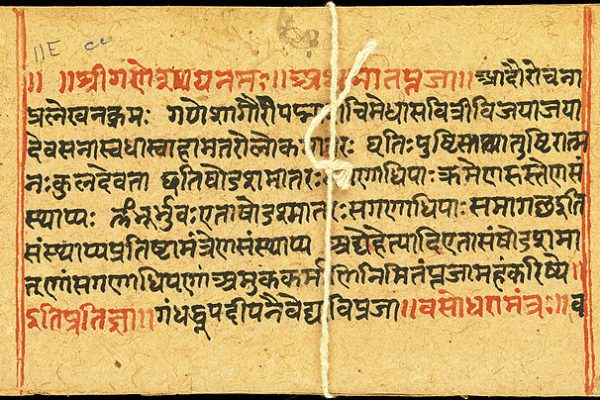 ॥E
॥ ॥श्रीगणेशायनमः॥अथमातृपूजा॥आदौरोचना
प्रलेखनक्रमः गणेशगौरीपद्माशचीमेधासावित्रीविजयाजया
देवसेनास्वधास्वाहामातरोलोकमातरः धृतिःपुष्टिस्तथातुष्टिरात्म
नःकुलदेवता इतिषोडशमातरः गणाधिपाः क्रमेणहस्तेणसं
स्थाप्यः ॐभूर्भुवःएताषोडशमातरःसगणाधिपाःसमागछत्इति
संस्थाप्यप्रतिष्टामंत्रेणसंस्थाप्य अद्येहेत्यादिएतासंषोडशमा
तृणांसगणाधिपाणां अमुककर्मणिनिमितंपूजामहंकरिष्ये॥
इतिप्रतिज्ञा॥गंधधूपदीपनैवेद्य विपूजा॥वसोधरामंत्रः॥व